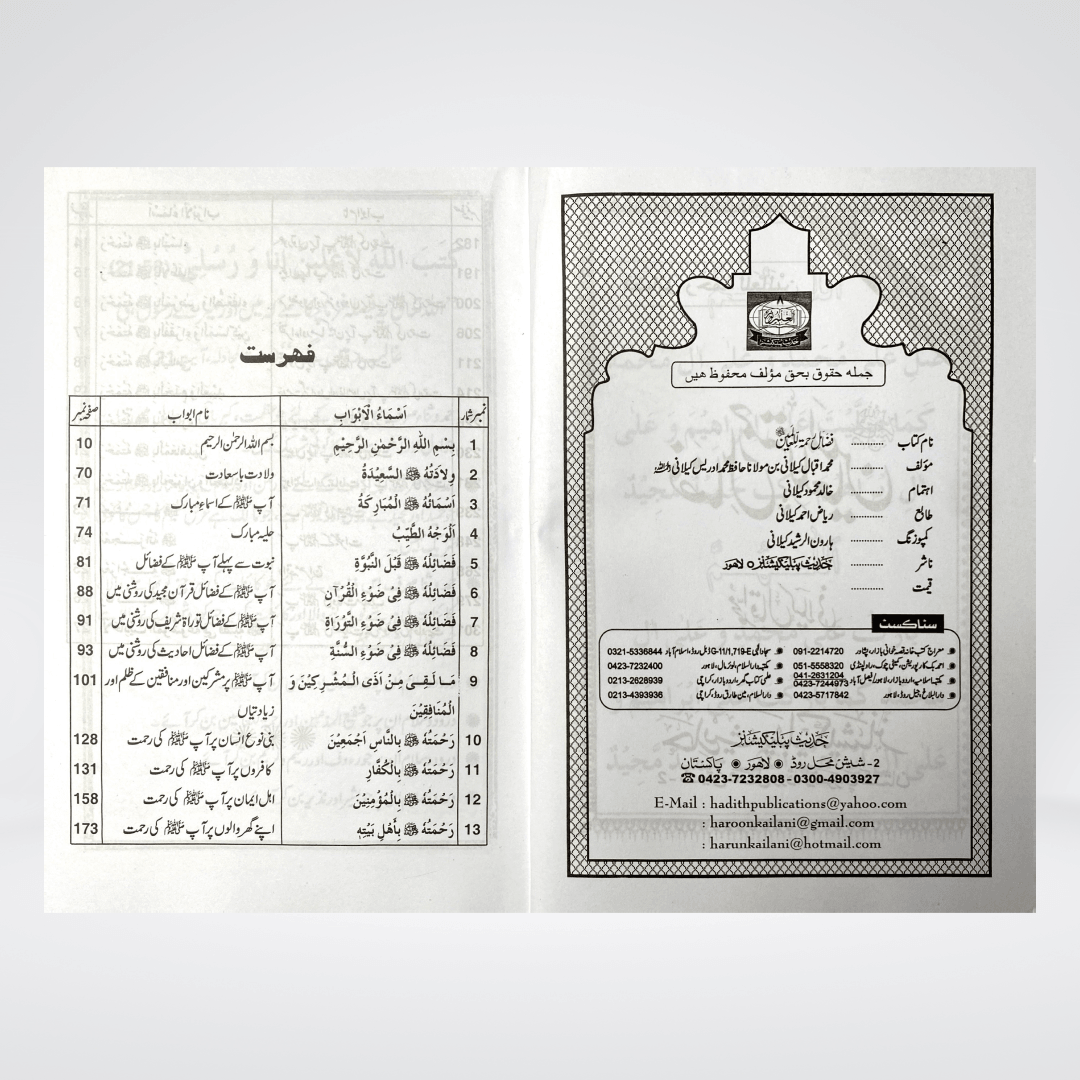 جملہ حقوق بحق مؤلف محفوظ ھیں
نام کتاب ............ فضائل رحمۃ للعالمین ﷺ
مؤلف ............ محمد اقبال کیلانی بن مولانا حافظ محمد ادریس کیلانی رحمہ اللہ
اہتمام ............ خالد محمود کیلانی
طابع ............ ریاض احمد کیلانی
کمپوزنگ ............ ہارون الرشید کیلانی
ناشر ............ حدیث پبلیکیشنز، لاہور
قیمت ............
سٹاکسٹ
معراج کتب خانہ قصہ خوانی بازار، پشاور 091-2214720
احمد بک کارپوریشن، کمیٹی چوک، راولپنڈی 051-5558320
مکتبہ اسلامیہ، اردو بازار، لاہور/فیصل آباد 041-2631204 0423-7244973
دارالبلاغ، چیٹل روڈ، لاہور 0423-5717842
G-11/1,719-E ڈبل روڈ، اسلام آباد 0321-5336844
مکتبہ دارالسلام، لوئر مال، لاہور 0423-7232400
علمی کتاب گھر، اردو بازار، کراچی 0213-2628939
دارالسلام، مین طارق روڈ، کراچی 0213-4393936
حدیث پبلیکیشنز
2- شیش محل روڈ ◉ لاھور ◉ پاکستان
☎ 0423-7232808 - 0300-4903927
E-Mail : hadithpublications@yahoo.com
: haroonkailani@gmail.com
: harunkailani@hotmail.com
فہرست
نمبر شمار اَسْمَاءُ الْاَبْوَابِ نام ابواب صفحہ نمبر
1 بِسْمِ اللّٰهِ الرَّحْمٰنِ الرَّحِيْمِ بسم اللہ الرحمٰن الرحیم 10
2 وِلاَدَتُهُ ﷺ السَّعِيْدَةُ ولادت باسعادت 70
3 اَسْمَائُهُ ﷺ الْمُبَارَكَةُ آپ ﷺ کے اسماء مبارک 71
4 اَلْوَجْهُ الطَّيِّبُ حلیہ مبارک 74
5 فَضَائِلُهُ ﷺ قَبْلَ النُّبُوَّةِ نبوت سے پہلے آپ ﷺ کے فضائل 81
6 فَضَائِلُهُ ﷺ فِيْ ضَوْءِ الْقُرْآنِ آپ ﷺ کے فضائل قرآن مجید کی روشنی میں 88
7 فَضَائِلُهُ ﷺ فِيْ ضَوْءِ التَّوْرَاةِ آپ ﷺ کے فضائل توراۃ شریف کی روشنی میں 91
8 فَضَائِلُهُ ﷺ فِيْ ضَوْءِ السُّنَّةِ آپ ﷺ کے فضائل احادیث کی روشنی میں 93
9 مَا لَقِيَ مِنْ اَذَى الْمُشْرِكِيْنَ وَ آپ ﷺ پر مشرکین اور منافقین کے ظلم اور 101
الْمُنَافِقِيْنَ زیادتیاں
10 رَحْمَتُهُ ﷺ بِالنَّاسِ اَجْمَعِيْنَ بنی نوع انسان پر آپ ﷺ کی رحمت 128
11 رَحْمَتُهُ ﷺ بِالْكُفَّارِ کافروں پر آپ ﷺ کی رحمت 131
12 رَحْمَتُهُ ﷺ بِالْمُؤْمِنِيْنَ اہل ایمان پر آپ ﷺ کی رحمت 158
13 رَحْمَتُهُ ﷺ بِأَهْلِ بَيْتِهٖ اپنے گھر والوں پر آپ ﷺ کی رحمت 173